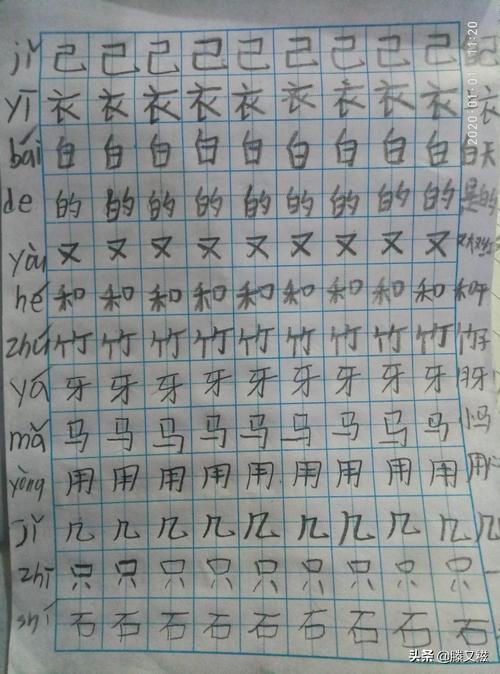 jǐ 己 己 己 己 己 己 己 己 己
yī 衣 衣 衣 衣 衣 衣 衣 衣 衣 衣
bái 白 白 白 白 白 白 白 白 白 白天
de 的 的 的 的 的 的 的 的 的 是的
yòu 又 又 又 又 又 又 又 又 又
hé 和 和 和 和 和 和 和 和 和 和平
zhú 竹 竹 竹 竹 竹 竹 竹 竹 竹 竹子
yá 牙 牙 牙 牙 牙 牙 牙 牙 牙 月牙
mǎ 马 马 马 马 马 马 马 马 马 小马
yòng 用 用 用 用 用 用 用 用 用 用
jǐ 几 几 几 几 几 几 几 几 几 几
zhī 只 只 只 只 只 只 只 只 只
shí 石 石 石 石 石 石 石 石 石
2020/01/01 11:20
头条 @滕又磁